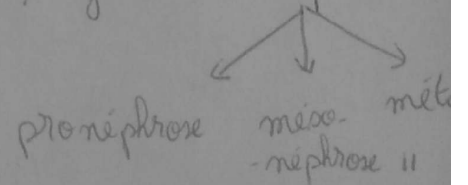 pronéphrose méso- mét
-néphrose 11